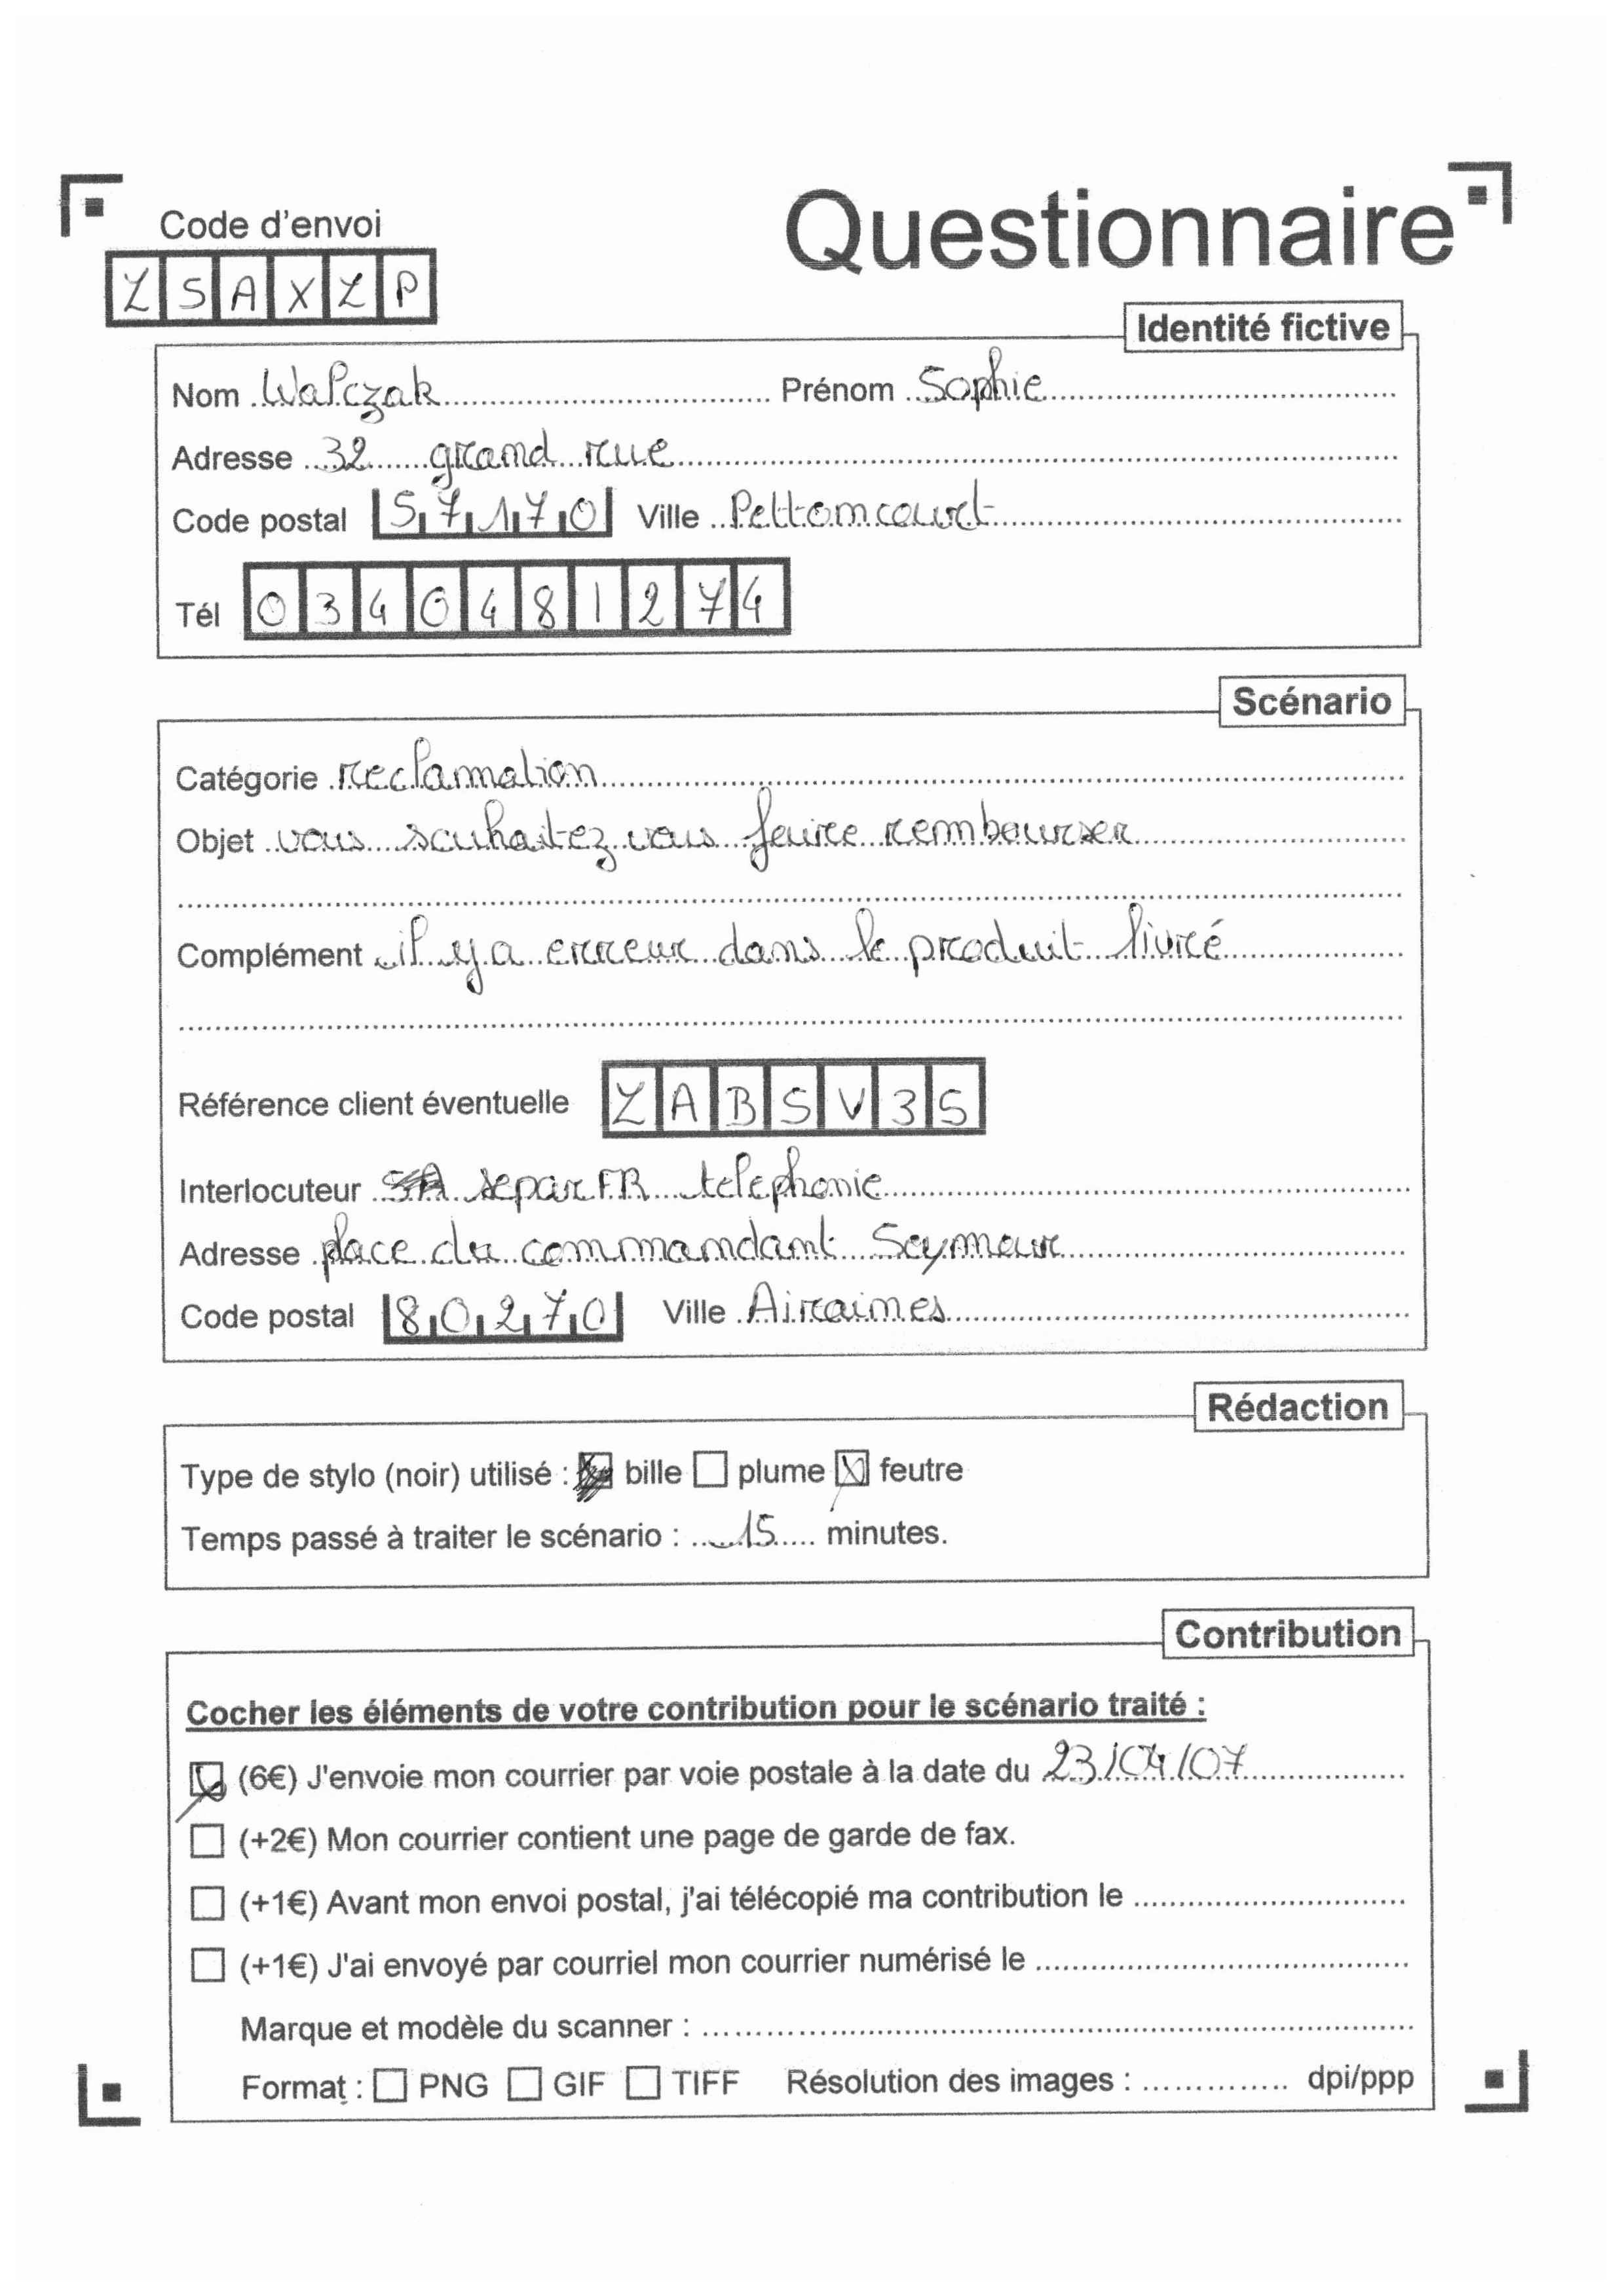 Questionnaire
Code d'envoi
ZSAXZP
Identité fictive
Nom Walczak Prénom Sophie
Adresse 32 grand rue
Code postal 57170 Ville Pettoncourt
Tél 0340481274
Scénario
Catégorie reclamation
Objet vous souhaitez vous faire rembourser
Complément il y a erreur dans le produit livré
Référence client éventuelle ZABSV35
Interlocuteur separ FR telephonie
Adresse place du commandant Seymour
Code postal 80270 Ville Airaines
Rédaction
Type de stylo (noir) utilisé : bille plume feutre
Temps passé à traiter le scénario : 15 minutes.
Contribution
Cocher les éléments de votre contribution pour le scénario traité :
(6€) J'envoie mon courrier par voie postale à la date du 23/04/07
(+2€) Mon courrier contient une page de garde de fax.
(+1€) Avant mon envoi postal, j'ai télécopié ma contribution le
(+1€) J'ai envoyé par courriel mon courrier numérisé le
Marque et modèle du scanner :
Format : PNG GIF TIFF Résolution des images : dpi/ppp